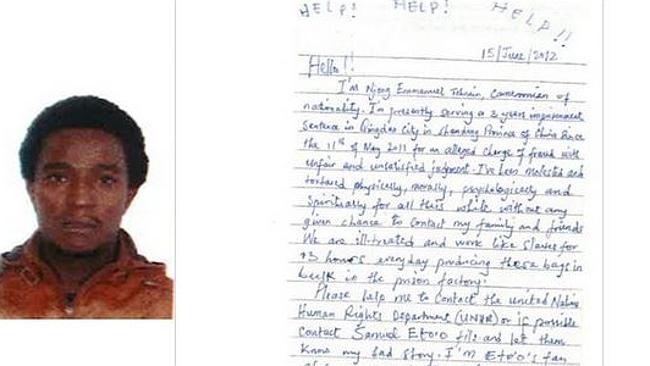 HELP! HELP! HELP!!
15/June/2012
Hello!!
I'm Njong Emmanuel Cameroonian of
nationality. I'm presently serving a 3 years imprisonment
sentence in Qingdao City in Shandong Province of China since
the 11th of May 2011 for an alleged charge of fraud with
unfair and unsatisfied judgment. I've been molested and
tortured physically, morally, psychologically and
spiritually for all this while without any
given chance to contact my family and friends
We are ill-treated and work like slaves for
13 hours everyday producing these bags in
bulk in the prison factory.
Please help me to contact the United Nations
Human Rights Department or if possible
contact Samuel Eto'o fils and let them
know my sad story. I'm Eto'o's fan